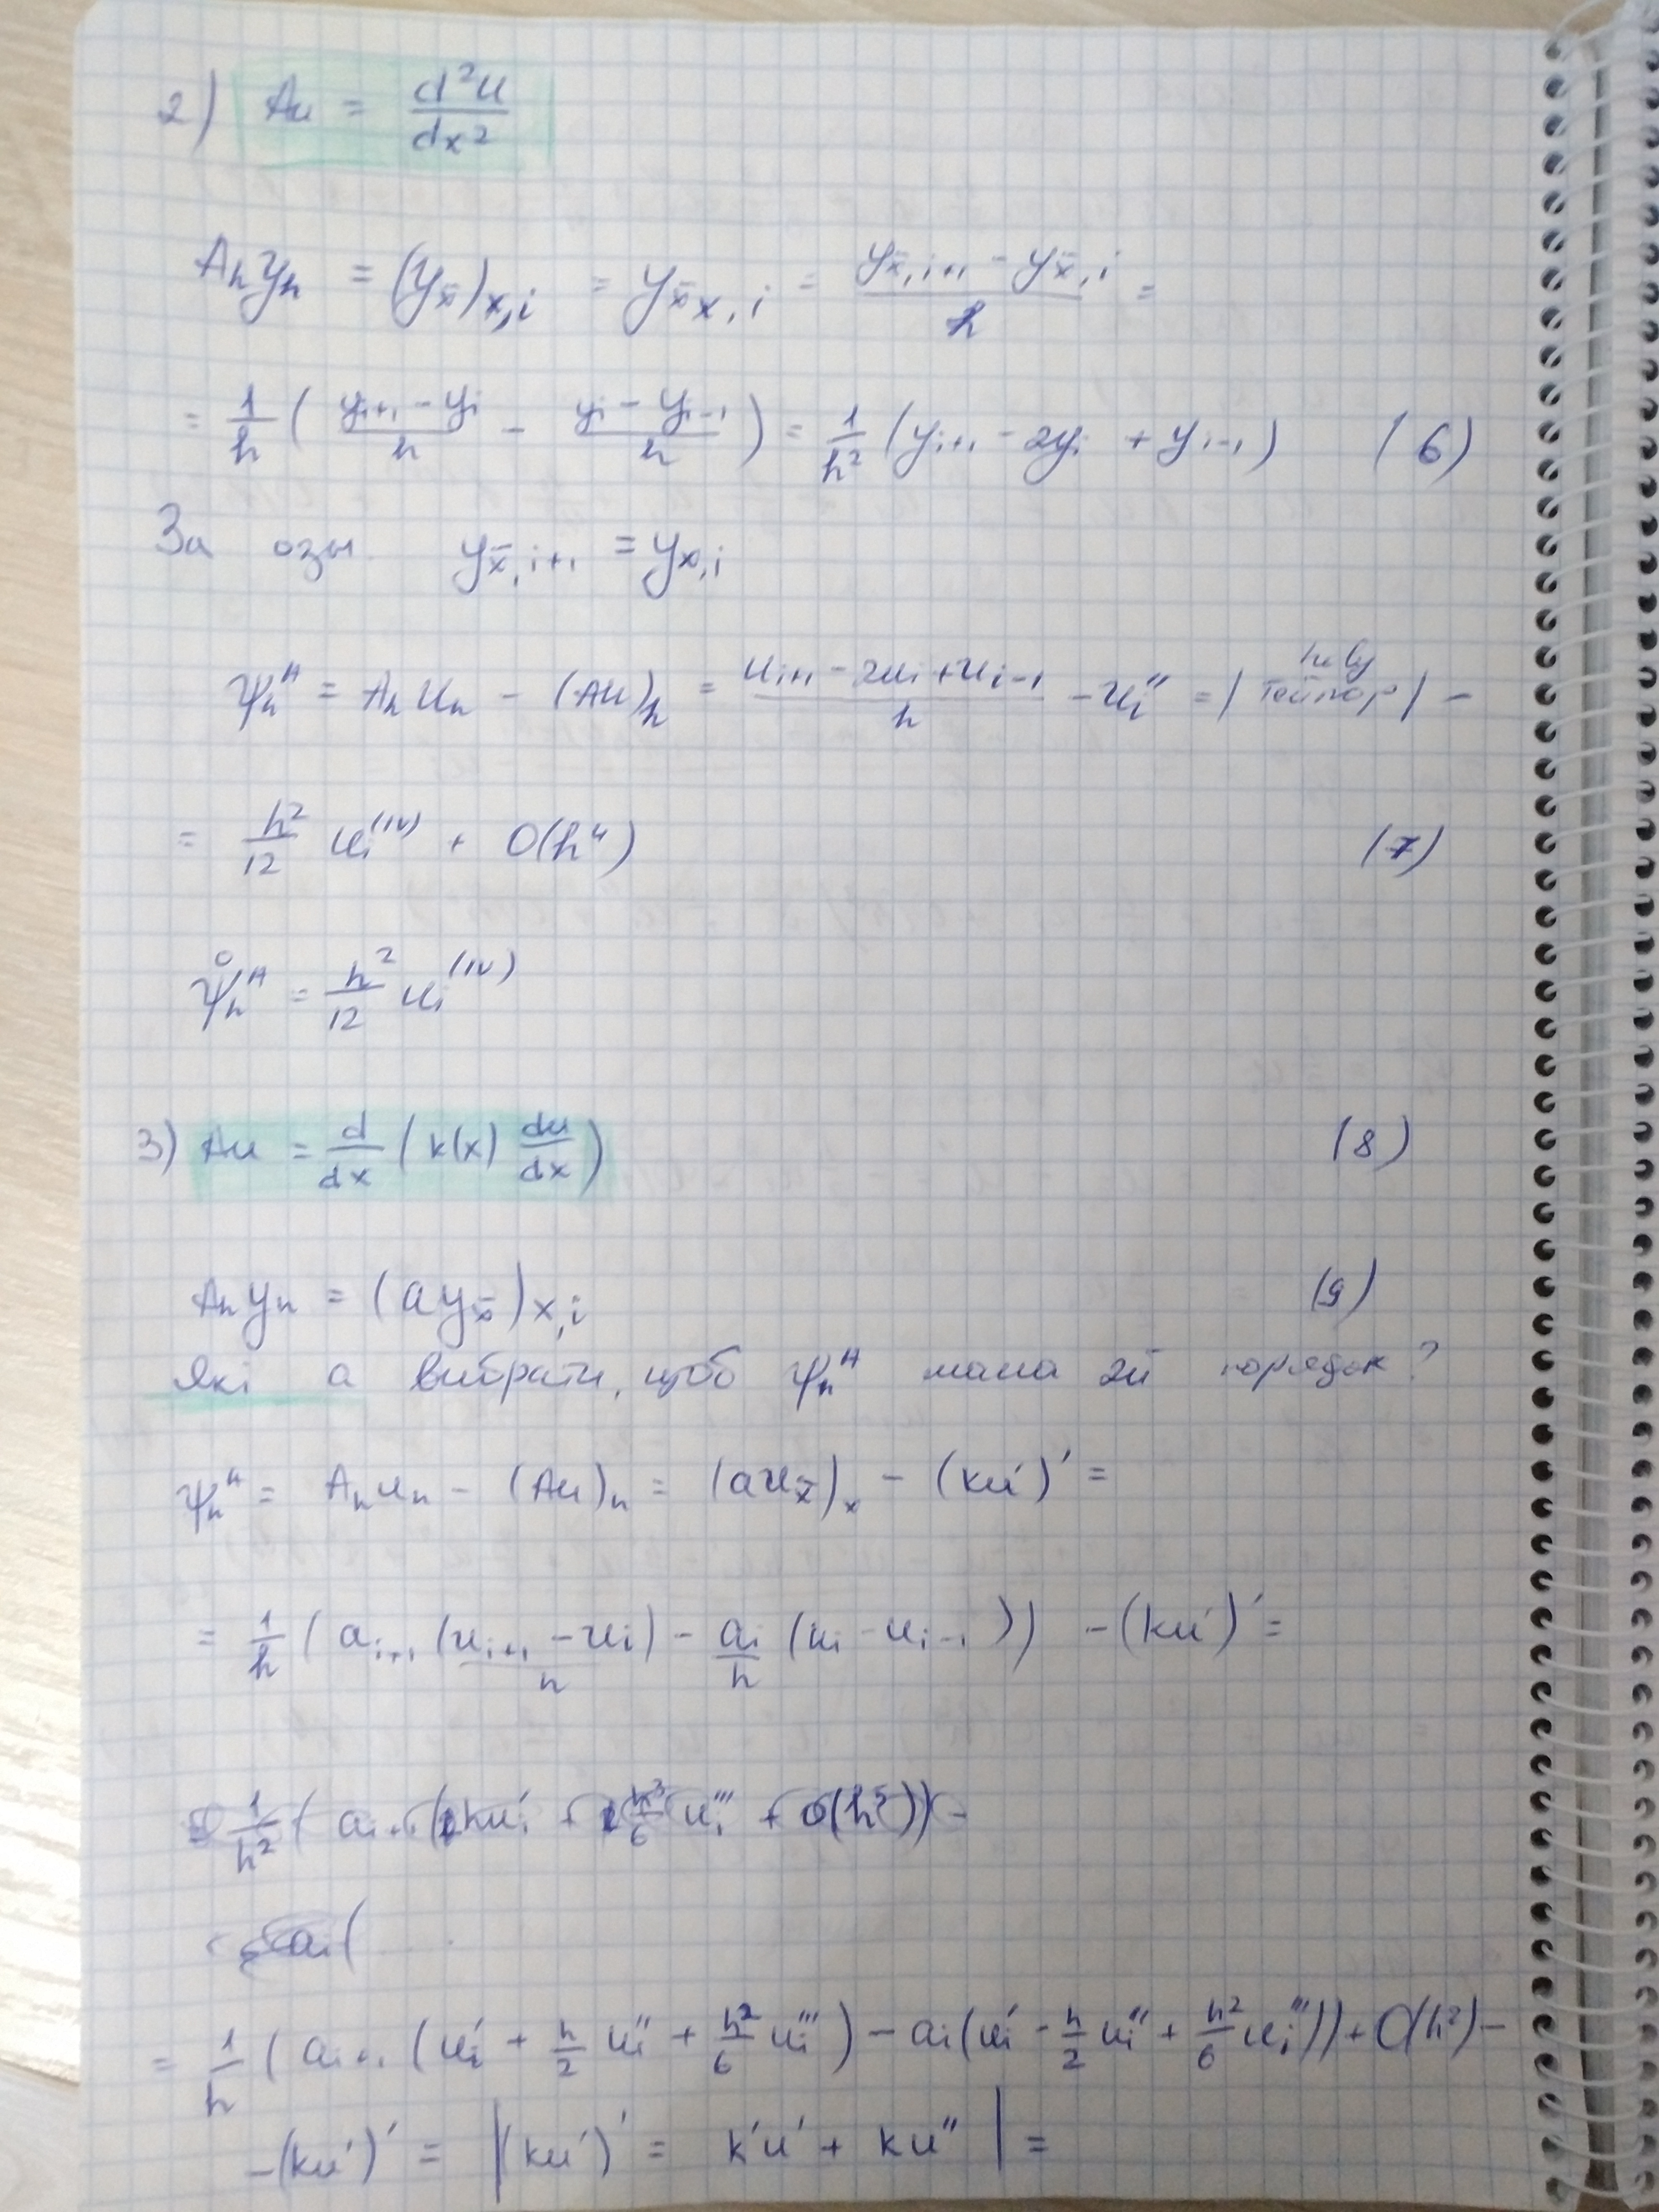 2) Au = d²u/dx²
Aₕyₕ = (y_x̄)_{x,i} = y_{x̄x,i} = (y_{x̄,i+1} - y_{x̄,i})/h =
= 1/h ( (y_{i+1} - y_i)/h - (y_i - y_{i-1})/h ) = 1/h² (y_{i+1} - 2y_i + y_{i-1}) (6)
За озн. y_{x̄,i+1} = y_{x,i}
ψₕᴬ = Aₕuₕ - (Au)ₕ = (u_{i+1} - 2u_i + u_{i-1})/h - u_i'' = | Тейлор | -
= h²/12 u_i^{(IV)} + O(h⁴) (7)
ψ̊ₕᴬ = h²/12 u_i^{(IV)}
3) Au = d/dx ( k(x) du/dx ) (8)
Aₕyₕ = (a y_x̄)_{x,i} (9)
Які а вибрати, щоб ψₕᴬ мала 2й порядок?
ψₕᴬ = Aₕuₕ - (Au)ₕ = (a u_x̄)_x - (ku')' =
= 1/h ( a_{i+1} (u_{i+1} - u_i)/h - a_i/h (u_i - u_{i-1})) - (ku')' =
= 1/h ( a_{i+1} ( u_i' + h/2 u_i'' + h²/6 u_i''' ) - a_i ( u_i' - h/2 u_i'' + h²/6 u_i''' )) + O(h²) -
- (ku')' = | (ku')' = k'u' + ku'' | =